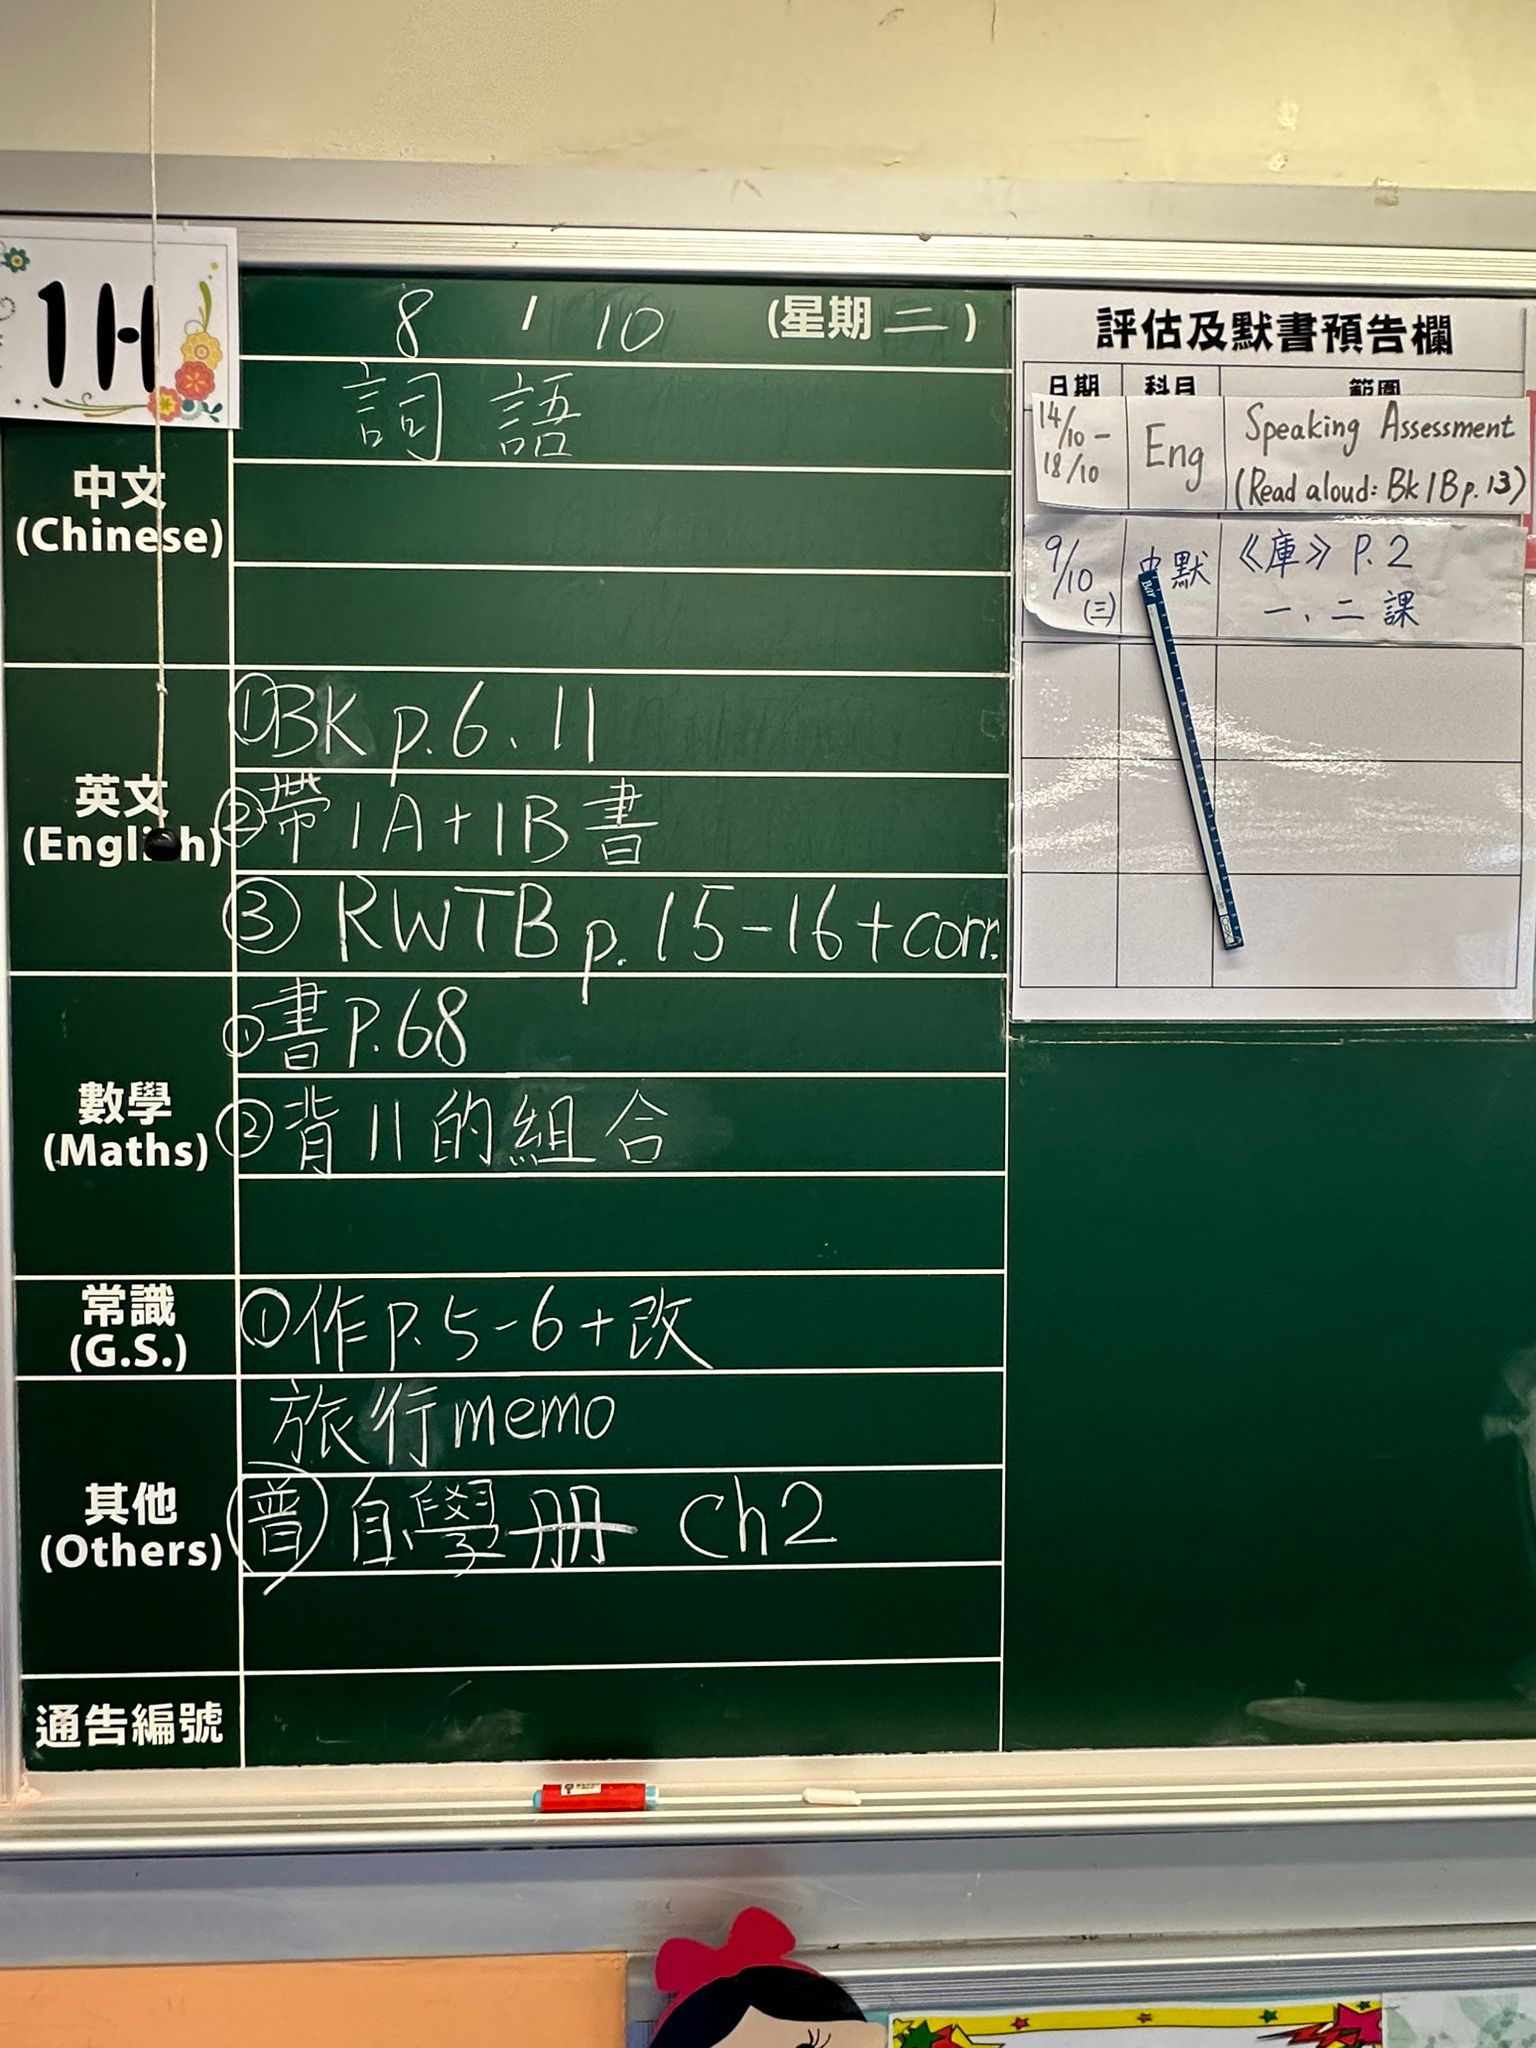 1H
8 / 10 (星期二)
中文
(Chinese)
詞語
英文
(English)
①BK p.6、11
②帶1A+1B書
③ RWTB p. 15-16+corr.
數學
(Maths)
①書P.68
②背11的組合
常識
(G.S.)
①作P.5-6+改
其他
(Others)
旅行memo
普 自學冊 Ch2
通告編號
評估及默書預告欄
日期 科目 範圍
14/10 - 18/10 Eng Speaking Assessment
(Read aloud: Bk 1B p.13)
9/10 (三) 中默 《庫》P.2
一、二課